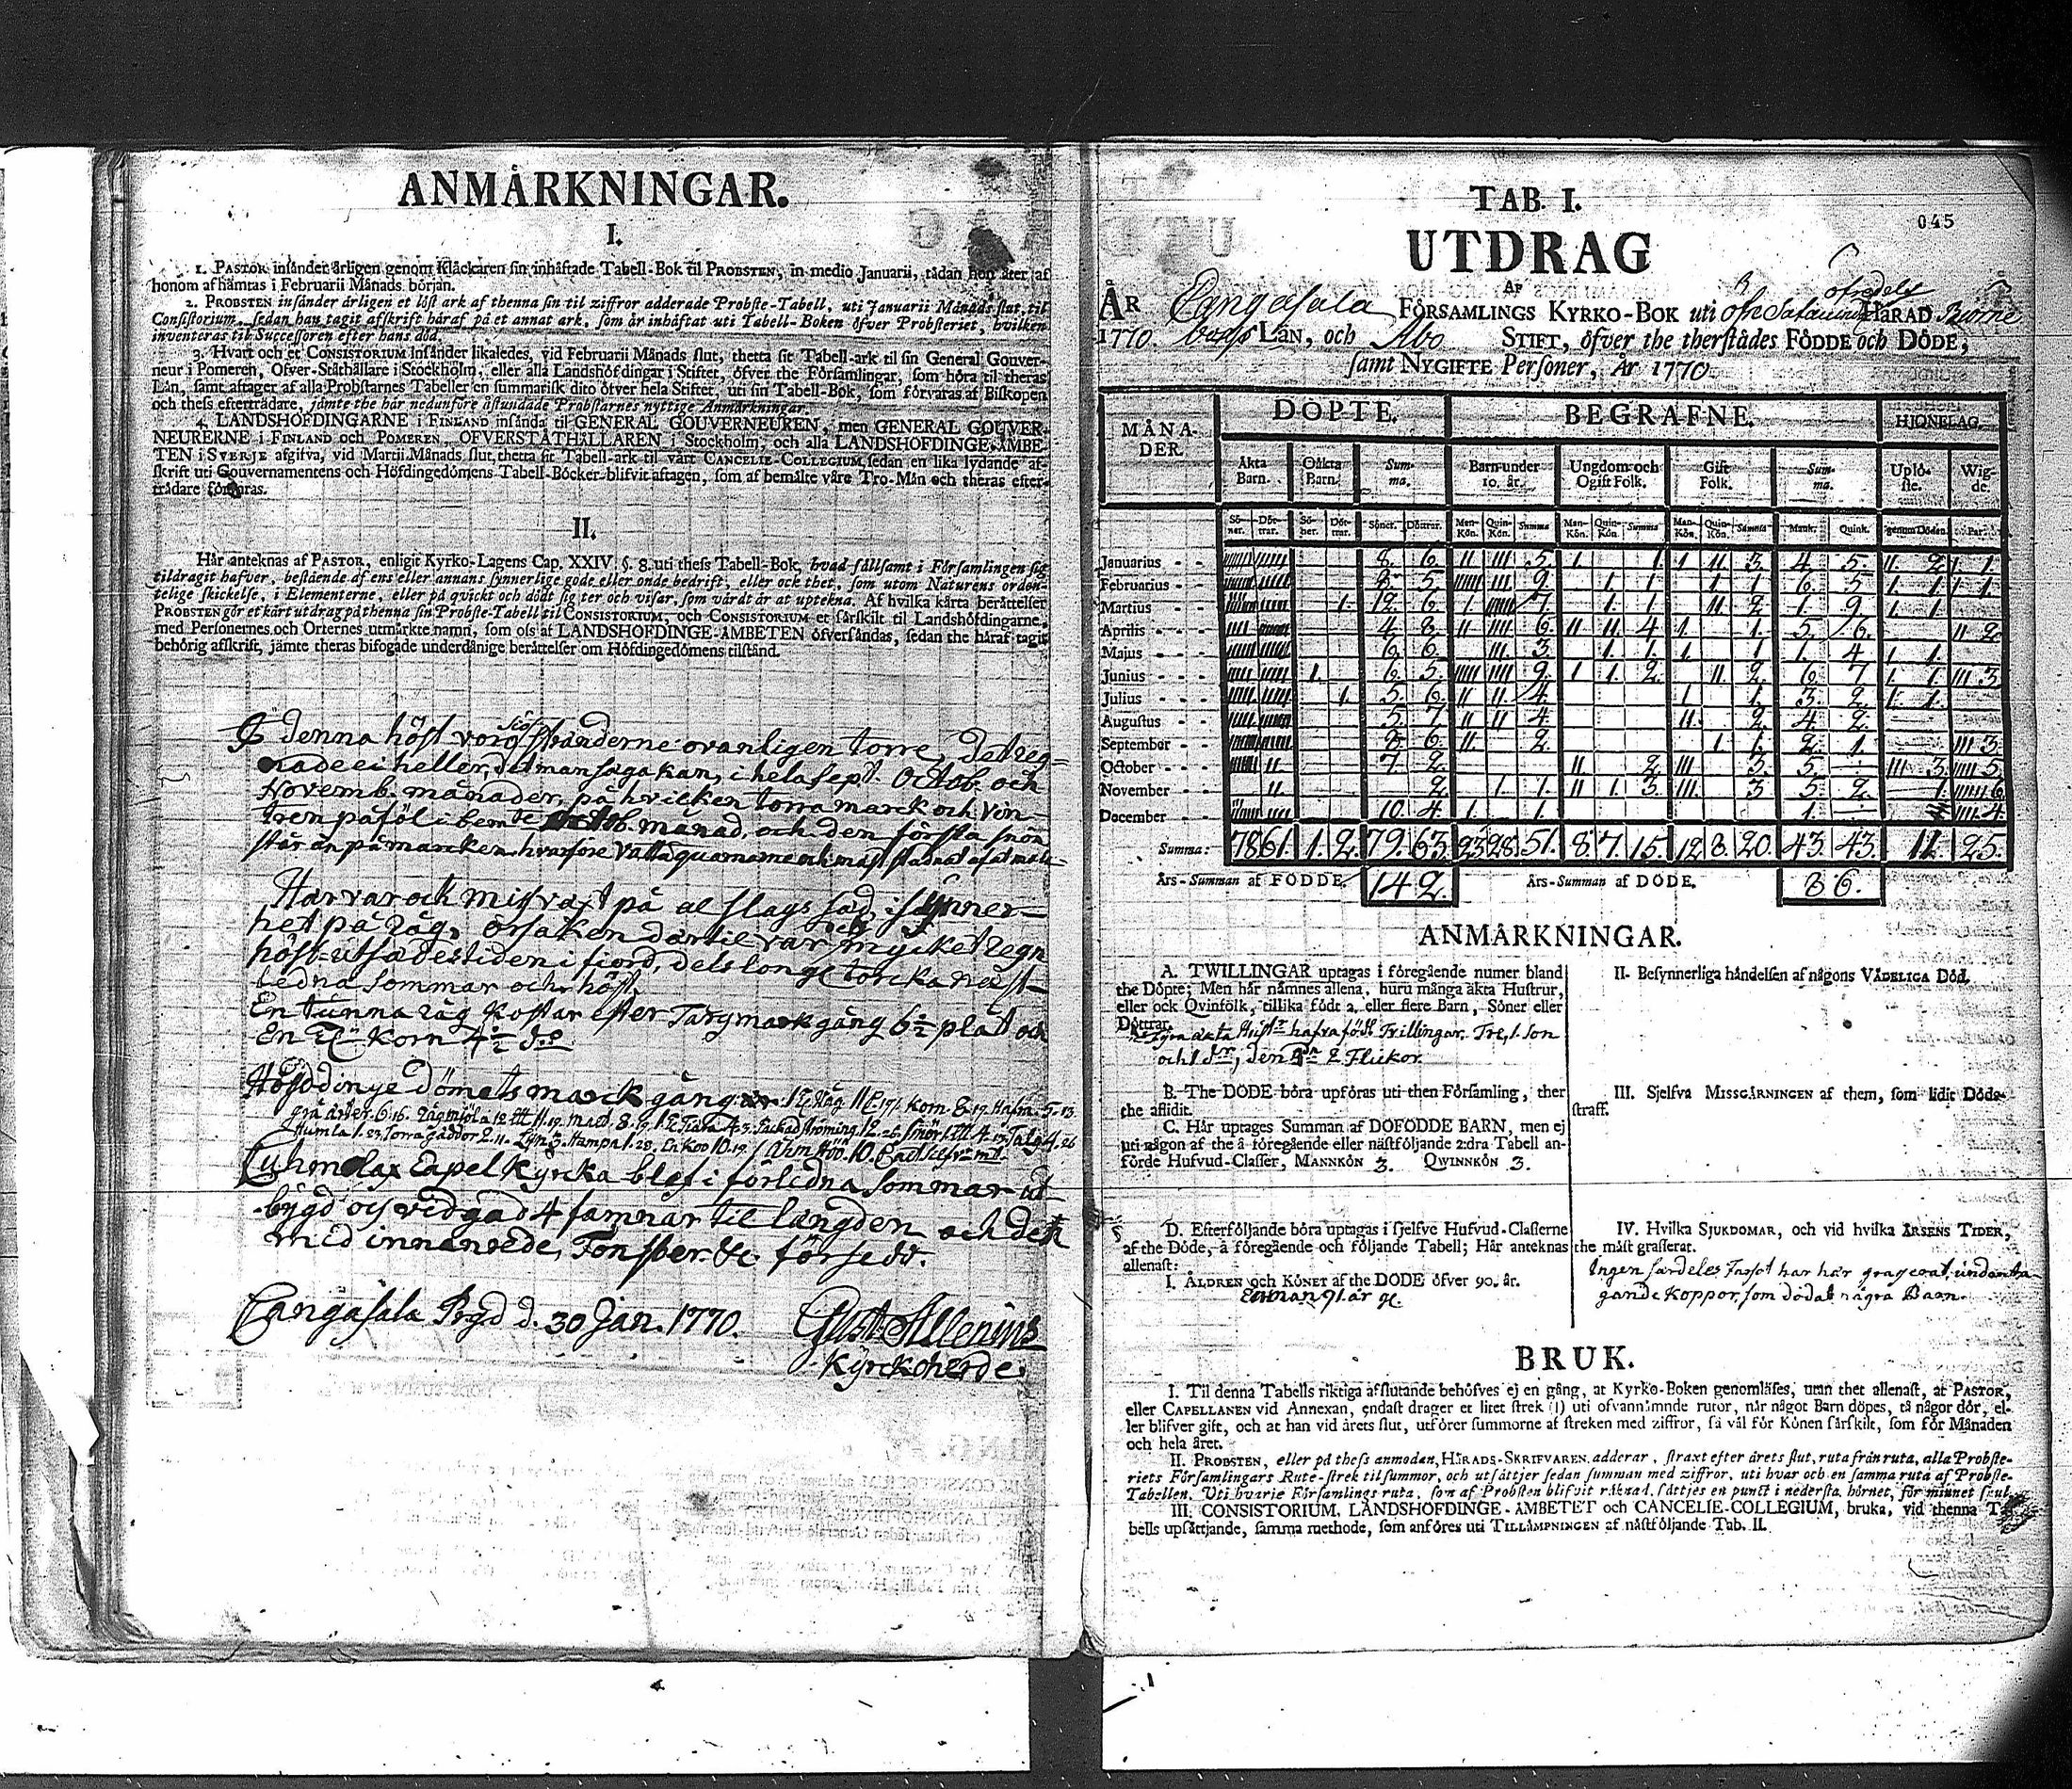 ANMÄRKNINGAR.
I.
1. PASTOR insänder årligen genom Kläckaren sin inhäftade Tabell-Bok til PROBSTEN, in medio Januarii, tädan hon åter af
honom afhämtas i Februarii Månads början.
2. PROBSTEN insänder årligen et löst ark af thenna sin til ziffror adderade Probste-Tabell, uti Januarii Månads slut, til
Consistorium, sedan han tagit afskrift häraf på et annat ark, som är inhäftat uti Tabell-Boken öfver Probsteriet, hvilken
inventeras til Successoren efter hans död.
3. Hvart och et CONSISTORIUM insänder likaledes, vid Februarii Månads slut, thetta sit Tabell-ark til sin General Gouver-
neur i Pomeren, Öfver-Ståthållare i Stockholm, eller alla Landshöfdingar i Stiftet, öfver the Församlingar, som höra til theras
Län, samt aftager af alla Probstarnes Tabeller en summarisk dito öfver hela Stiftet, uti sin Tabell-Bok, som förvaras af Biskopen
och thess efterträdare, jämte the här nedunföre åstundade Probstarnes nyttige Anmärkningar.
4. LANDSHÖFDINGARNE i FINLAND insända til GENERAL GOUVERNEUREN, men GENERAL GOUVER-
NEURERNE i FINLAND och POMEREN, ÖFVERSTÅTHÅLLAREN i Stockholm, och alla LANDSHÖFDINGE-ÄMBE-
TEN i SVERJE afgifva, vid Martii Månads slut, thetta sit Tabell-ark til vårt CANCELIE-COLLEGIUM, sedan en lika lydande af-
skrift uti Gouvernamentens och Höfdingedömens Tabell-Böcker blifvit aftagen, som af bemälte våre Tro-Män och theras efter-
trädare förvaras.
II.
Här anteknas af PASTOR, enligit Kyrko-Lagens Cap. XXIV. §. 8. uti thess Tabell-Bok, hvad sällsamt i Församlingen sig
tildragit hafver, bestående af ens eller annans synnerlige gode eller onde bedrift, eller ock thet, som utom Naturens orden-
telige skickelse, i Elementerne, eller på quickt och dödt sig ter och visar, som värdt är at uptekna. Af hvilka kårta berättelser
PROBSTEN gör et kårt utdrag på thenna sin Probste-Tabell til CONSISTORIUM, och CONSISTORIUM et särskilt til Landshöfdingarne,
med Personernes och Orternes utmärkte namn, som oss af LANDSHÖFDINGE-ÄMBETEN öfversändas, sedan the häraf tagit
behörig afskrift, jämte theras bifogade underdånige berättelser om Höfdingedömens tilstånd.
I denna höst voro stränderne ovanligen torre, det reg-
nade ei heller, det man säga kan, i hela Sept. Octob. och
Novemb. månader, på hvilken torra marck och vin-
tren påföl i bem:te månad, och den första snön
står än på marcken, hvarföre
Här var ock missväxt på al slags säd, i synner-
het på råg, orsaken där til var mycket regn
höst-utsädestiden i fjord, dels longe torcka näst-
ledna sommar och höst.
En tunna råg kostar efter Targ marckgång 6 1/2 plåt och
En T:a Korn 4 1/2 d:o
Höfddinge Dömets marckgång
Cuhmolax Capel Kyrcka blef i förledna sommar ut-
bygd och vidgad 4 famnar til längden och det
med innanrede, Fönster &c försedt.
Cangasala Prgd d. 30 Jan. 1770. Gust: Allenius
Kyrckoherde
TAB. I.
045
UTDRAG
AF
ÅR Cangasala FÖRSAMLINGS KYRKO-BOK uti öfre Satacunda öfredels HÄRAD Biörne
1770. borgs LÄN, och Åbo STIFT, öfver the therstädes FÖDDE och DÖDE,
samt NYGIFTE Personer, År 1770.
MÅNA-DER. DÖPTE. BEGRAFNE. HJONELAG.
Äkta Barn. Oäkta Barn. Summa. Barn under 10. år. Ungdom och Ogift Folk. Gift Folk. Summa. Uplöste. Wigde.
Söner. Döttrar. Söner. Döttrar. Söner. Döttrar. Man-Kön. Quin-Kön. Summa Man-Kön. Quin-Kön. Summa Man-Kön. Quin-Kön. Summa Mank. Quink. genom Döden. Par.
Januarius 8. 6. 5. 1. 3. 4. 5. 2. 1.
Februarius 8. 5. 9. 1. 1. 6. 5. 1. 1.
Martius 12. 6. 7. 1. 2. 1. 9. 1.
Aprilis 4. 8. 6. 4. 1. 5. 6. 2.
Majus 6. 6. 3. 1. 1. 1. 4. 1.
Junius 6. 5. 9. 2. 2. 6. 7. 1. 3.
Julius 5. 6. 4. 1. 3. 2. 1.
Augustus 5. 7. 4. 2. 4. 2.
September 8. 6. 2. 1. 2. 1. 3.
October 7. 2. 2. 3. 5. 3. 5.
November 2. 1. 3. 3 5. 2. 1. 6.
December 10. 4. 1. 1. 4.
Summa: 78 61. 1. 2. 79. 63. 23 28. 51. 8. 7. 15. 12 8. 20. 43. 43. 11. 25.
Års-Summan af FÖDDE. 142. Års-Summan af DÖDE. 86.
ANMÄRKNINGAR.
A. TWILLINGAR uptagas i föregående numer bland
the Döpte; Men här nämnes allena, huru många äkta Hustrur,
eller ock Qvinfolk, tillika födt 2. eller flere Barn, Söner eller
Döttrar.
Fyra äkta Hust:r hafva födt Tvillingar. Tre, 1. son
och 1 d:r, den 4:de 2 Flickor.
B. The DÖDE böra upföras uti then Församling, ther
the aflidit.
C. Här uptages Summan af DÖFÖDDE BARN, men ej
uti någon af the å föregående eller nästföljande 2:dra Tabell an-
förde Hufvud-Classer, MANNKÖN 3. QWINNKÖN 3.
D. Efterföljande böra uptagas i sjelfve Hufvud-Classerne
af the Döde, å föregående och följande Tabell; Här anteknas
allenast:
I. ÅLDREN och KÖNET af the DÖDE öfver 90. år.
En man 91. år gl.
II. Besynnerliga händelsen af någons VÅDELIGA Död.
III. Sjelfva MISSGÄRNINGEN af them, som lidit Döds-
straff.
IV. Hvilka SJUKDOMAR, och vid hvilka ÅRSENS TIDER,
the mäst grasserat.
Ingen särdeles Farsot har här grasserat, undanta-
gande koppor, som dödat några Barn.
BRUK.
I. Til denna Tabells riktiga afslutande behöfves ej en gång, at Kyrko-Boken genomläses, utan thet allenast, at PASTOR,
eller CAPELLANEN vid Annexan, endast drager et litet strek (|) uti ofvannämnde rutor, når något Barn döpes, tå någor dör, el-
ler blifver gift, och at han vid årets slut, utförer summorne af streken med ziffror, så väl för Könen särskilt, som för Månaden
och hela året.
II. PROBSTEN, eller på thess anmodan, HÄRADS-SKRIFVAREN, adderar, straxt efter årets slut, ruta från ruta, alla Probste-
riets Församlingars Rute-strek til summor, och utsättjer sedan summan med ziffror, uti hvar och en samma ruta af Probste-
Tabellen. Uti hvarje Församlings ruta, som af Probsten blifvit räknad, sättjes en punct i nedersta hörnet, för minnet skul.
III. CONSISTORIUM, LANDSHÖFDINGE-ÄMBETET och CANCELIE-COLLEGIUM, bruka, vid thenna Ta-
bells upsättjande, samma methode, som anföres uti TILLÄMPNINGEN af nästföljande Tab. II.